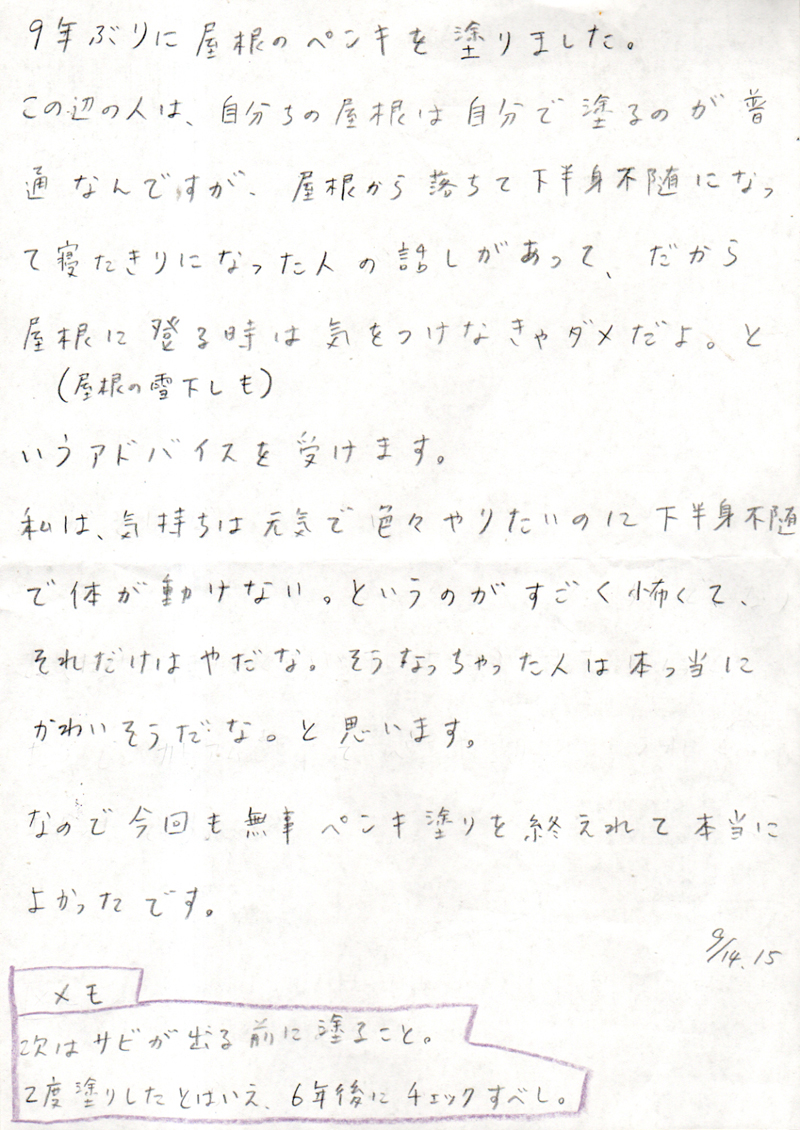 9年ぶりに屋根のペンキを塗りました。
この辺の人は、自分ちの屋根は自分で塗るのが普
通なんですが、屋根から落ちて下半身不随になっ
て寝たきりになった人の話しがあって、だから
屋根に登る時は気をつけなきゃダメだよ。と
(屋根の雪下しも)
いうアドバイスを受けます。
私は、気持ちは元気で色々やりたいのに下半身不随
で体が動けない。というのがすごく怖くて、
それだけはやだな。そうなっちゃった人は本っ当に
かわいそうだな。と思います。
なので今回も無事ペンキ塗りを終えれて本当に
よかったです。
9/14.15
メモ
次はサビが出る前に塗ること。
2度塗りしたとはいえ、6年後にチェックすべし。